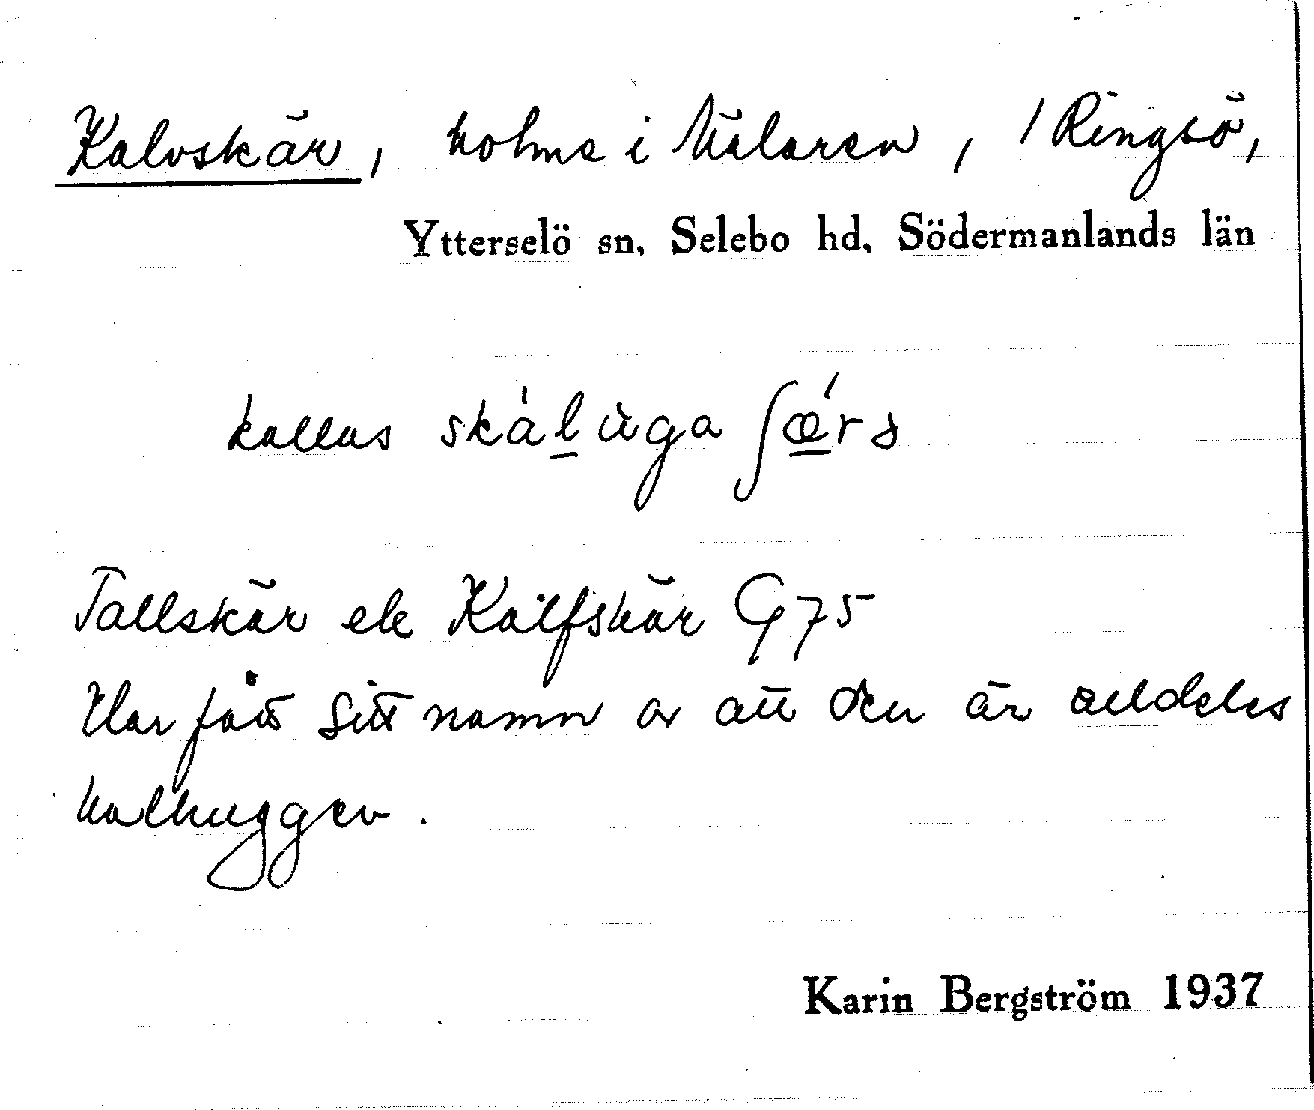 Kalvskär, holme i Mälaren, 1 Ringsö,
Ytterselö sn, Selebo hd, Södermanlands län
kallas skálùga ʃǽrs
Tallskär ele Kalfskär G 75
Har fått sitt namn av att den är alldeles
kalhuggen.
Karin Bergström 1937